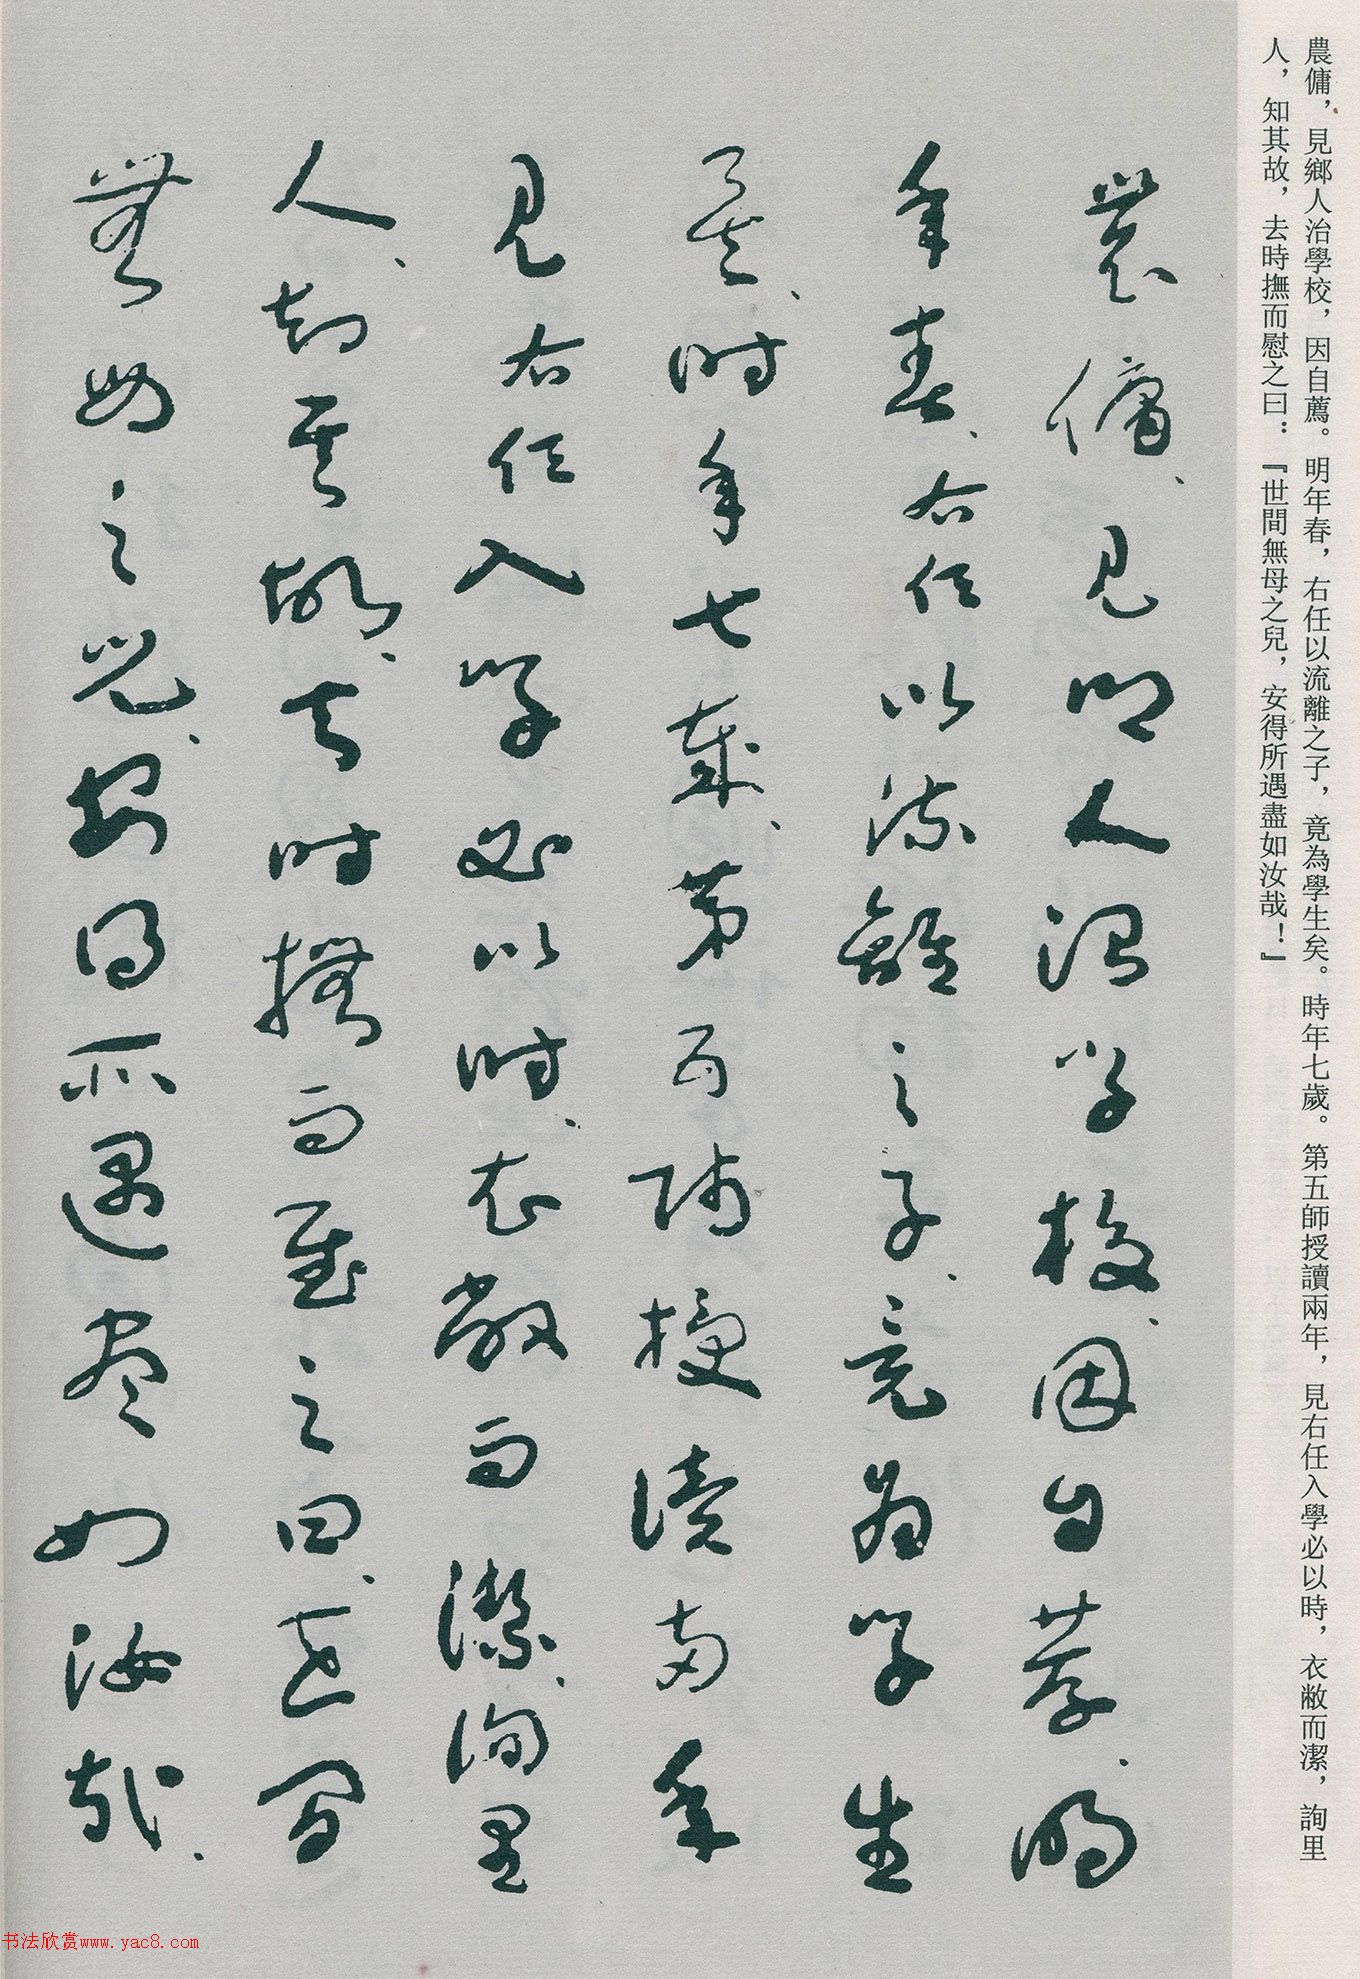 農傭，見鄉人治學校，因自薦。明年春，右任以流離之子，竟為學生矣。時年七歲。第五師授讀兩年，見右任入學必以時，衣敝而潔，詢里
人，知其故，去時撫而慰之曰：『世間無母之兒，安得所遇盡如汝哉！』
農傭、見鄉人治學校、因自薦、明
年春、右任以流離之子、竟為學生
矣、時年七歲、第五師授讀兩年
見右任入學必以時、衣敝而潔、詢里
人、知其故、去時撫而慰之曰、世間
無母之兒、安得所遇盡如汝哉、
书法欣赏www.yac8.com